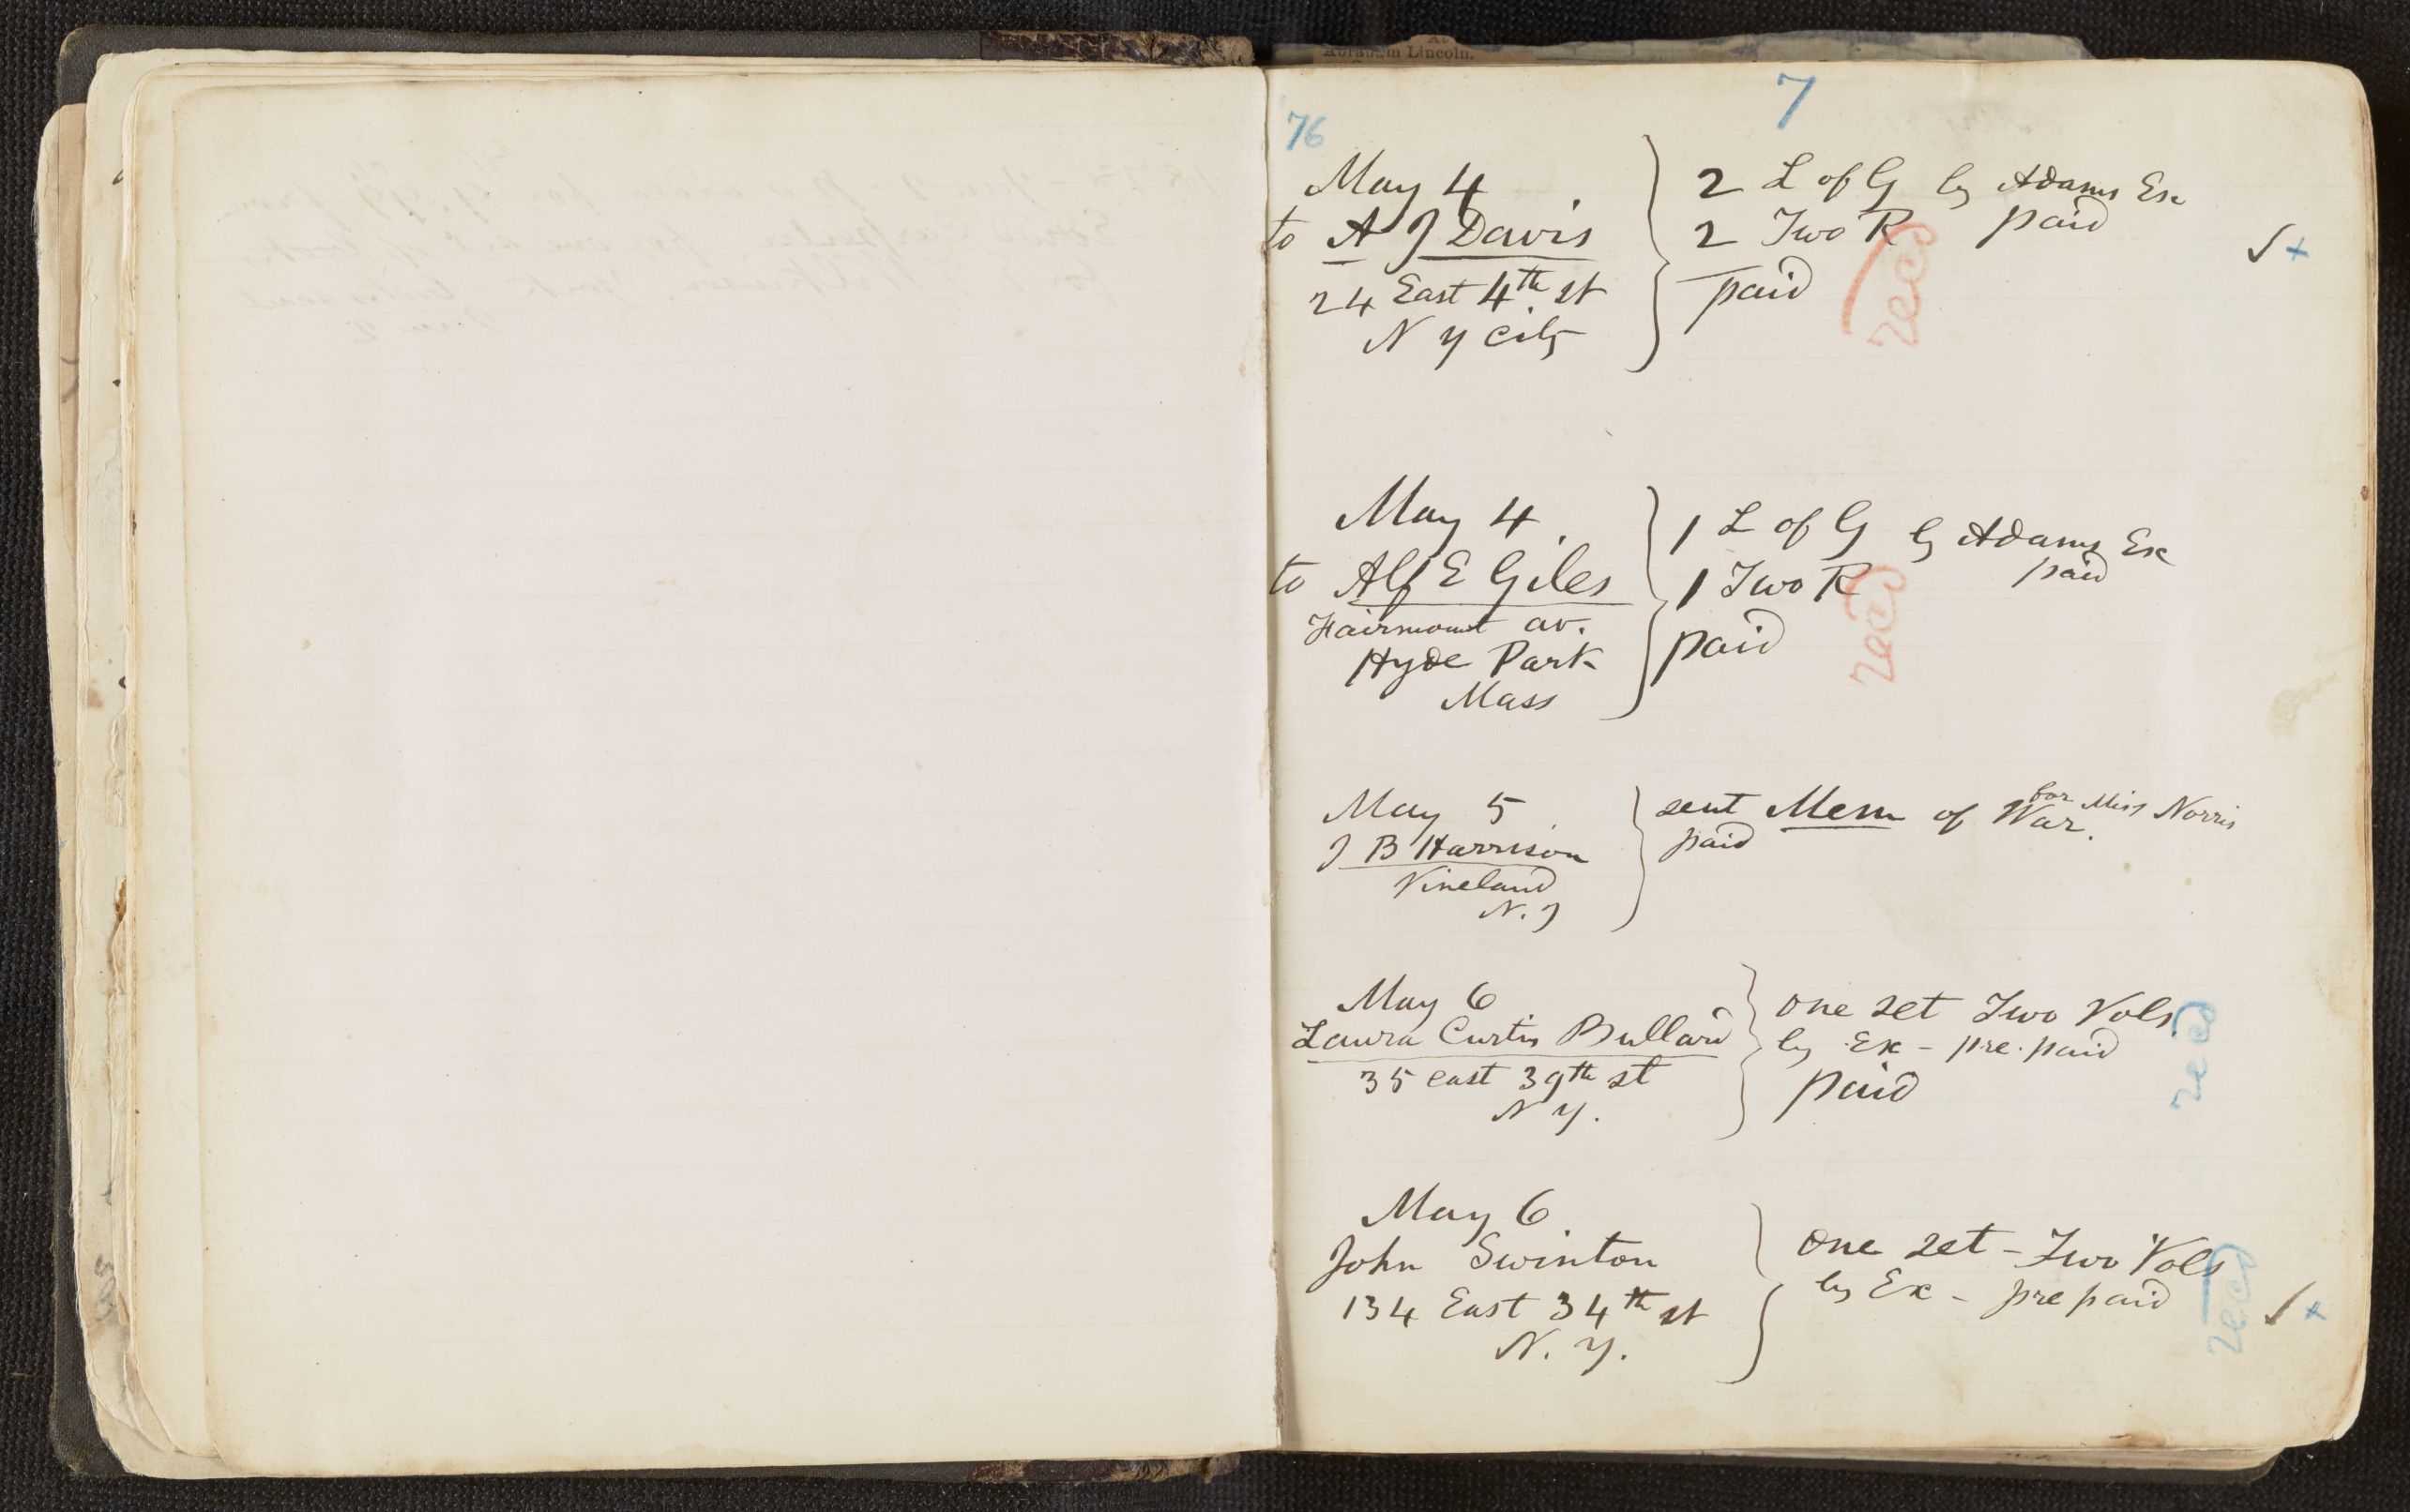 Abraham Lincoln.
7
76
May 4
to A J Davis
24 East 4th st
N Y City
2 L of G by Adams Ex
2 Two R paid
paid
rec'd
May 4
to Alf E Giles
Fairmount av.
Hyde Park
Mass
1 L of G by Adams Ex
1 Two R paid
paid
rec'd
May 5
J B Harrison
Vineland
N. J
sent Mem of War. for Miss Norris
paid
May 6
Laura Curtis Bullard
35 east 39th st
N Y.
one set Two Vols
by Ex - pre-paid
paid
rec'd
May 6
John Swinton
134 East 34th st
N. Y.
one set - Two Vols
by Ex - pre paid
rec'd